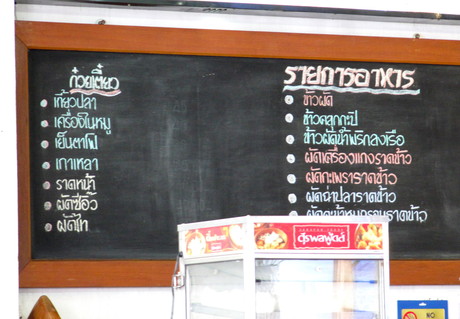 ก๋วยเตี๋ยว
เกี้ยวปลา
เครื่องในหมู
เย็นตาโฟ
เกาเหลา
ราดหน้า
ผัดซีอิ๊ว
ผัดไท
รายการอาหาร
ข้าวผัด
ข้าวคลุกกะปิ
ข้าวผัดน้ำพริกลงเรือ
ผัดเครื่องแกงราดข้าว
ผัดกะเพราราดข้าว
ผัดฉ่าปลาราดข้าว
ราดข้าว
สุรพลฟู้ดส์
NO